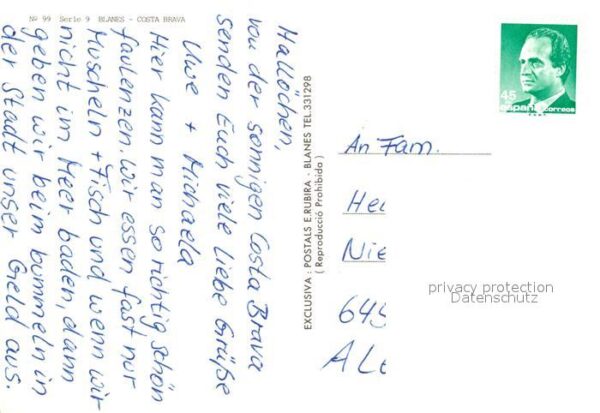 Nº 99 Serie 9 BLANES - COSTA BRAVA
Hallöchen,
von der sonnigen Costa Brava
senden Euch viele liebe Grüße
Uwe + Michaela
Hier kann man so richtig schön
faulenzen. Wir essen fast nur
Muscheln + Fisch und wenn wir
nicht im Meer baden, dann
geben wir beim bummeln in
der Stadt unser Geld aus.
EXCLUSIVA: POSTALS E.RUBIRA - BLANES TEL.331298
( Reproducció Prohibida )
45
españa correos
An Fam.
Nie
privacy protection
Datenschutz